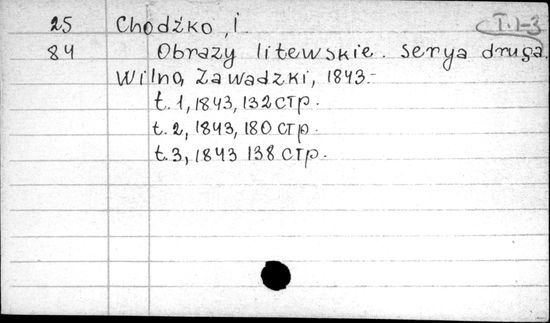 25 Chodźko, i. T. 1-3
84 Obrazy litewskie. Serya druga.
Wilno, Zawadzki, 1843.-
t. 1, 1843, 132 стр.
t. 2, 1843, 180 стр.
t. 3, 1843 138 стр.